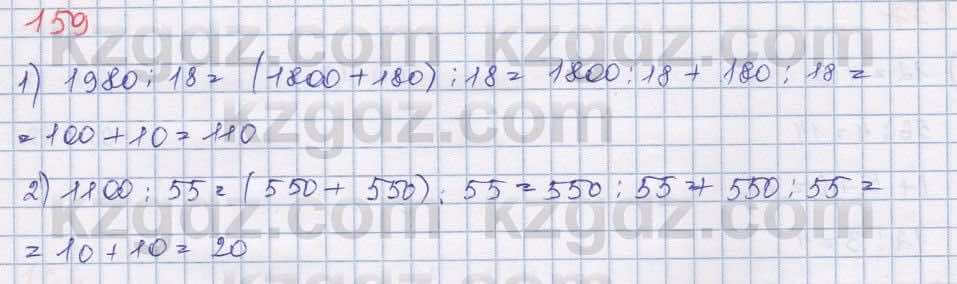 159
1) 1980 : 18 = (1800 + 180) : 18 = 1800 : 18 + 180 : 18 =
= 100 + 10 = 110
2) 1100 : 55 = (550 + 550) : 55 = 550 : 55 + 550 : 55 =
= 10 + 10 = 20
kzgdz.com kzgdz.com
kzgdz.com
kzgdz.com kzgdz.com